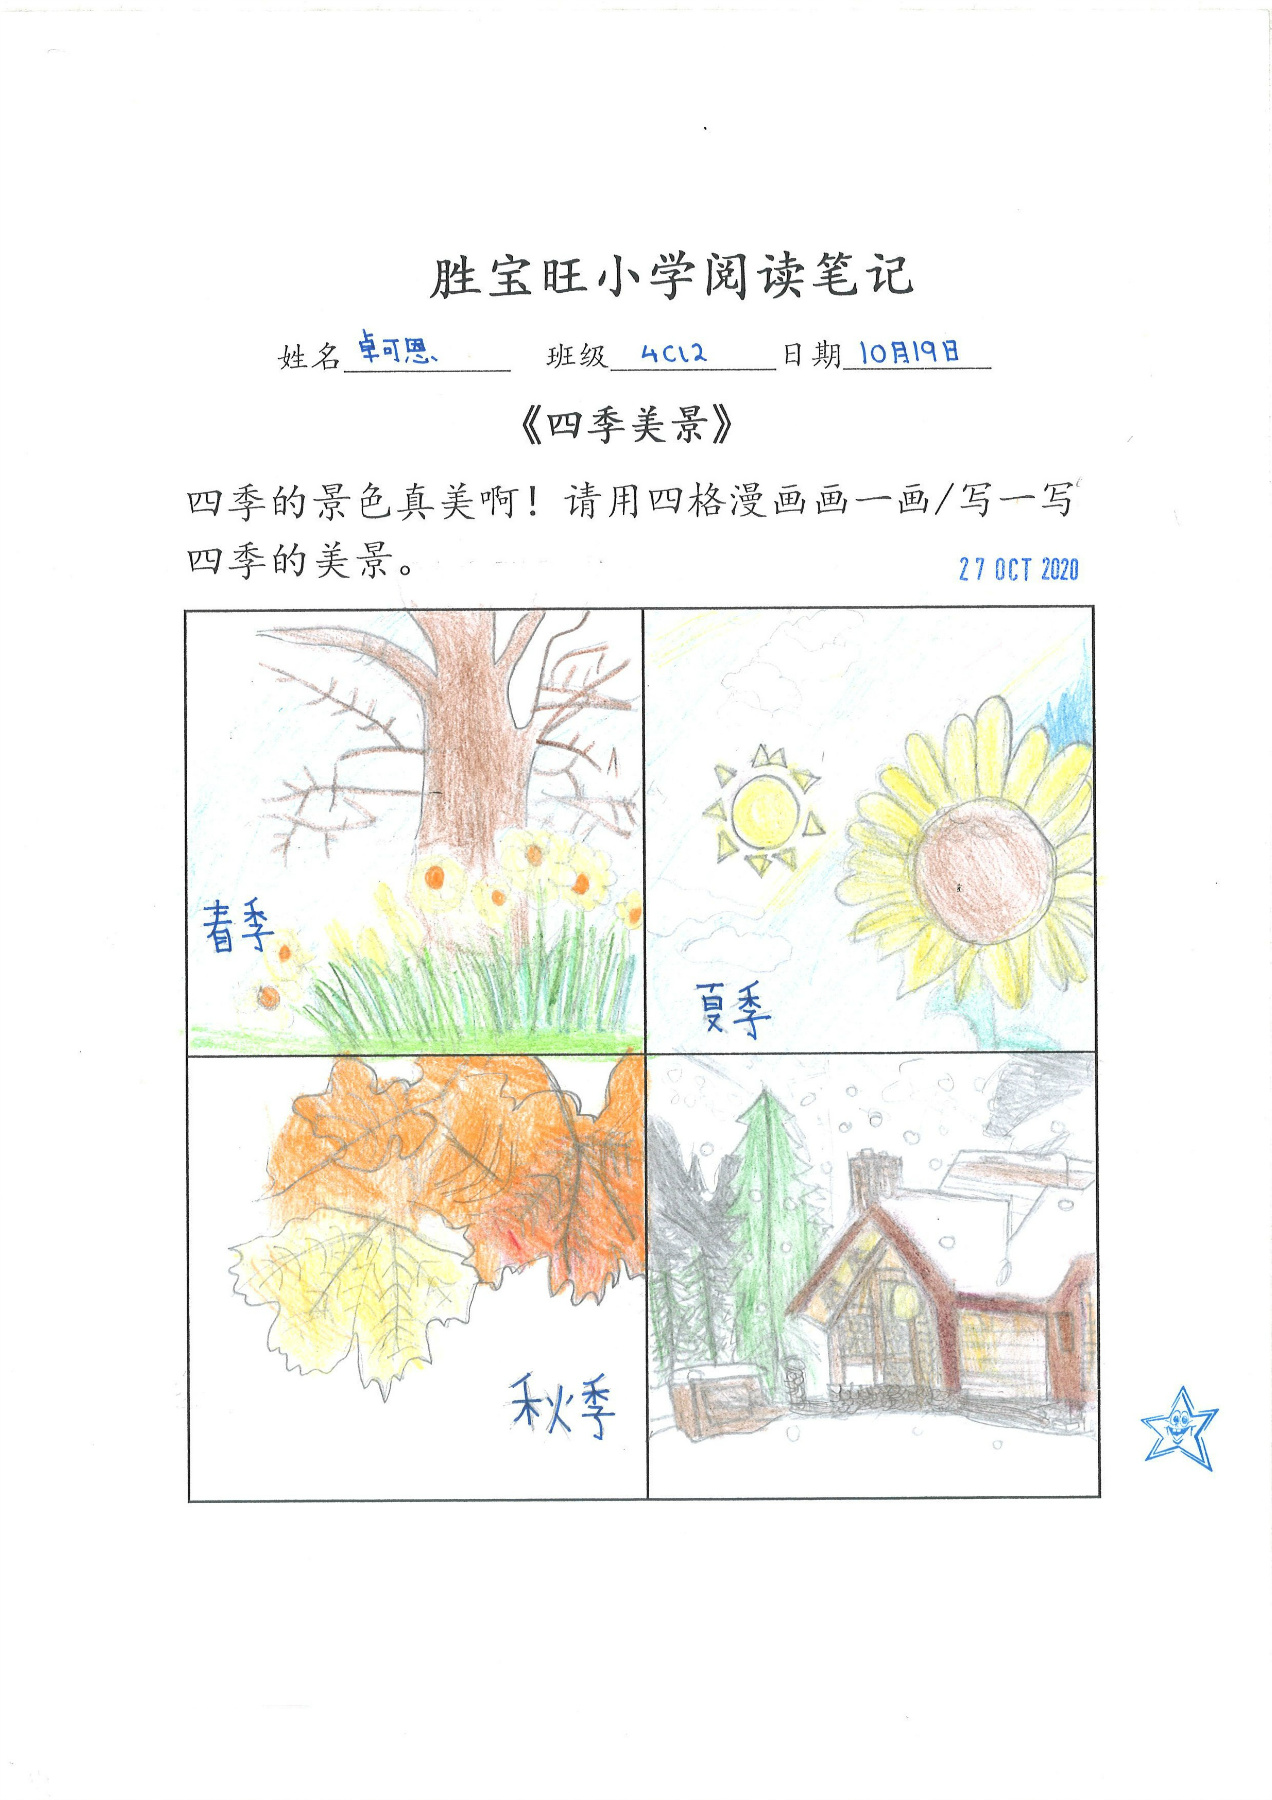 胜宝旺小学阅读笔记
姓名 卓可恩 班级 4CL2 日期 10月19日
《四季美景》
四季的景色真美啊！请用四格漫画画一画/写一写
四季的美景。
27 OCT 2020
春季
夏季
秋季